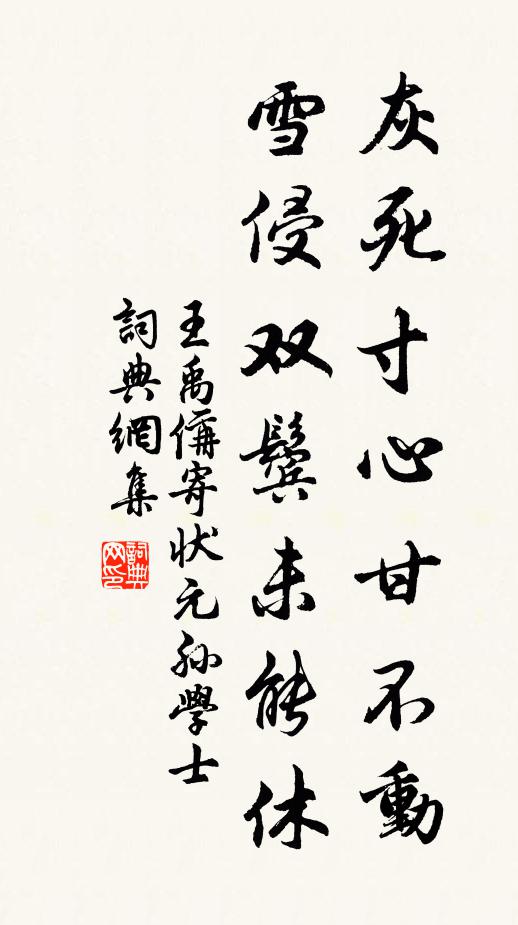 灰死寸心甘不動
雪侵双鬢未能休
王禹偁寄狀元孫學士
詞典網集
詞典网印